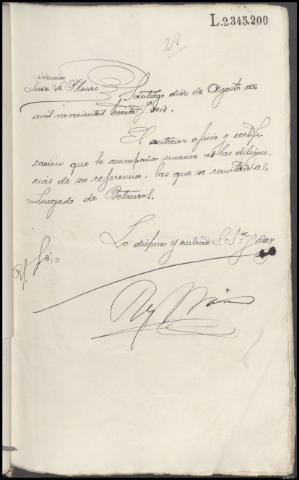 L.2345.200
29
Juez Sr. Santiago diez de Agosto de
mil novecientos treinta y seis.
El anterior oficio y certifi
cación que le acompaña únanse a las diligen
cias de su referencia, las que se remitirán al
Juzgado de Betanzos.
Lo dispuso y rubrica S. Sª. Doy
fé.=